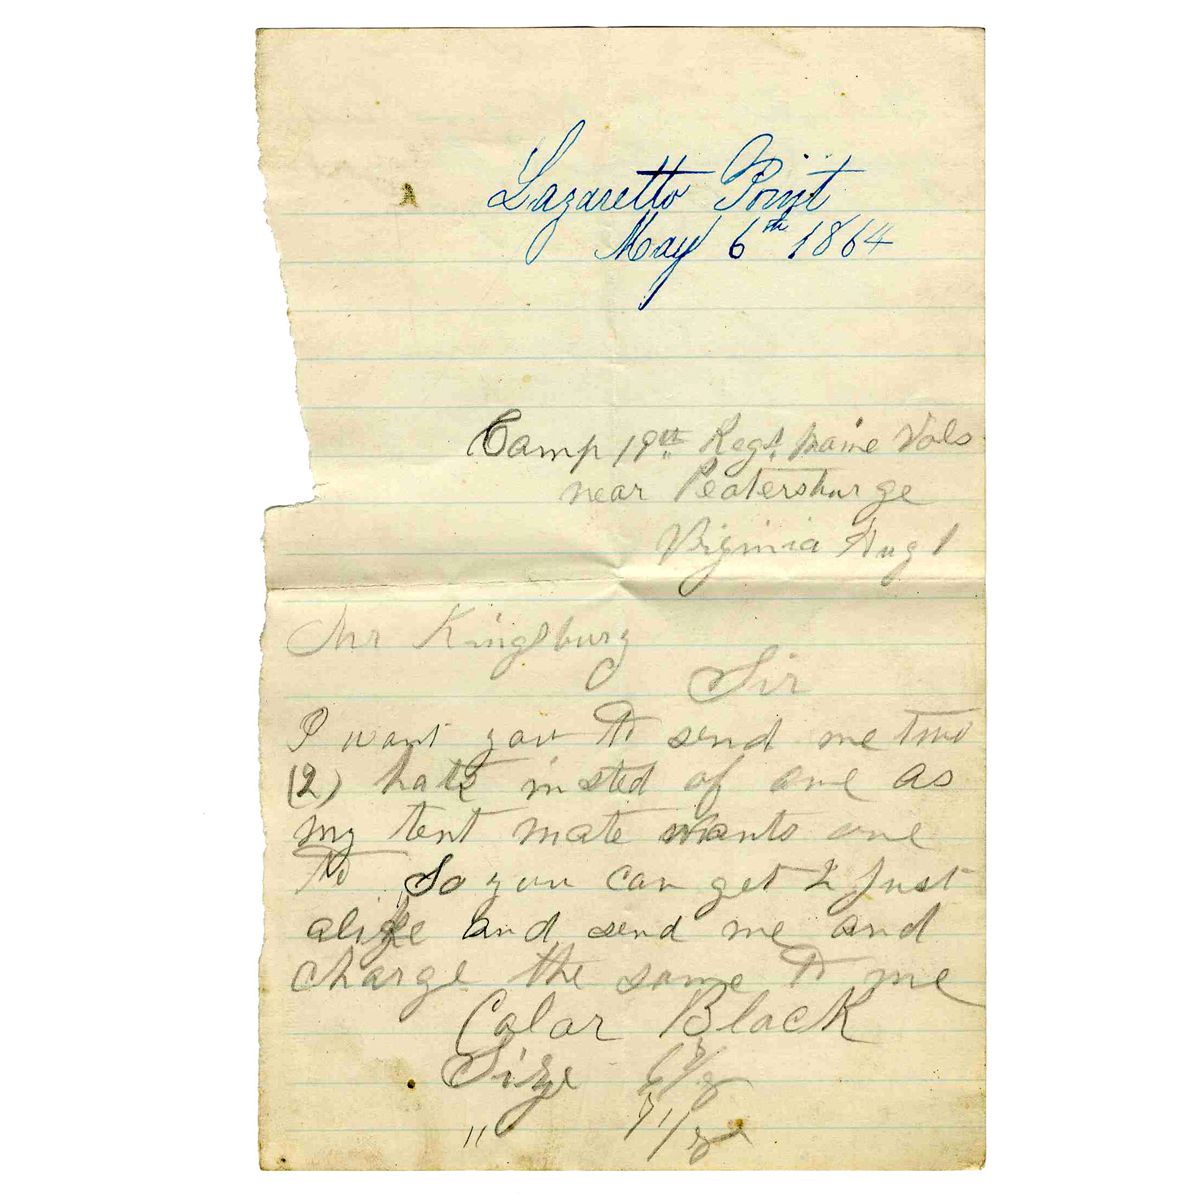 Lazaretto Point
May 6th 1864
Camp 19th Regt Maine Vols
near Peatersburge
Virginia Aug 1
Mr Kingsbury
Sir
I want you to send me two
(2) hats insted of one as
my tent mate wants one
to So you can get 2 just
alike and send me and
charge the same to me
Color Black
Size 6 7/8
" 7 1/8